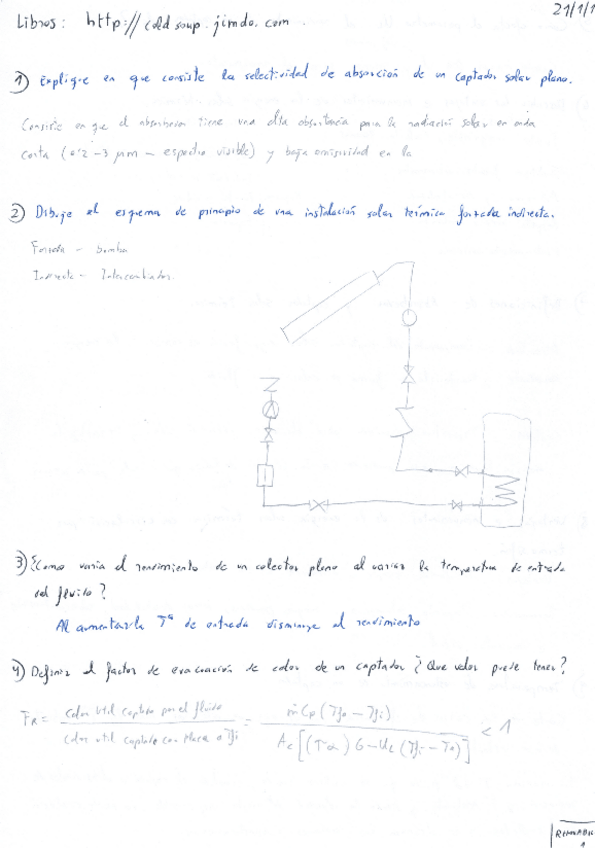 21/1/1
Libros: http://coldsoup.jimdo.com.
1) Explique en que consiste la selectividad de absorción de un captador solar plano.
Consiste en que el absorbedor tiene una alta absortancia para la radiación solar en onda
corta (0'2-3 µm - espectro visible) y baja emisividad en la
2) Dibuje el esquema de principio de una instalación solar térmica forzada indirecta.
Forzada - bomba
Indirecta - Intercambiador.
3) ¿Como varia el rendimiento de un colector plano al variar la temperatura de entrada
del fluido?
Al aumentar la Tª de entrada disminuye el rendimiento
4) Definir el factor de evacuación de calor de un captador ¿Que valor puede tener?
FR = calor util captado por el fluido / calor util captado con placa a Tfi = ṁ Cp (Tfo - Tfi) / Ac [(τα) G - UL (Tfi - Ta)] < 1
1